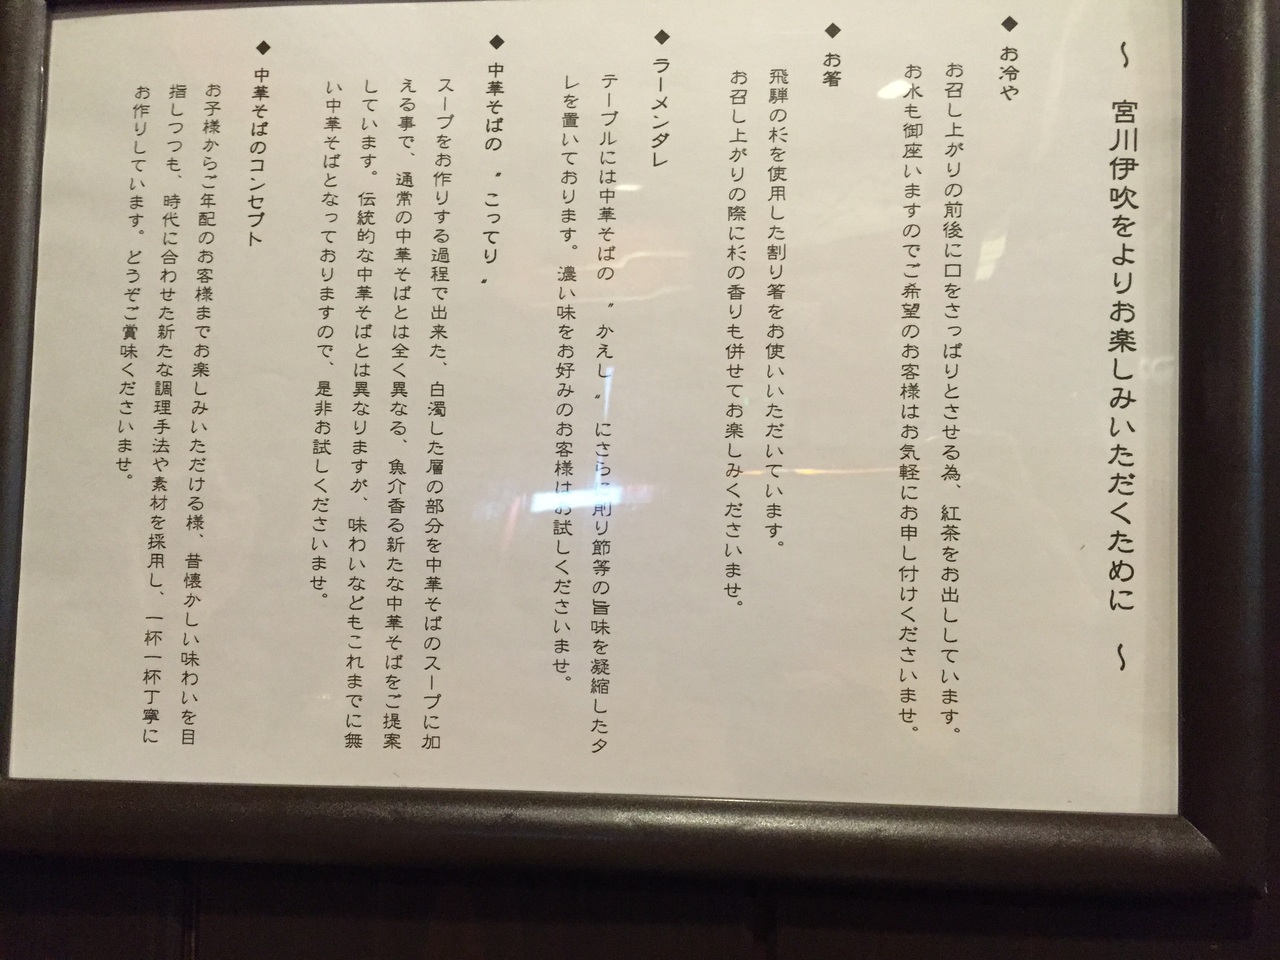 ～ 宮川伊吹をよりお楽しみいただくために ～
◆ お冷や
お召し上がりの前後に口をさっぱりとさせる為、紅茶をお出ししています。
お水も御座いますのでご希望のお客様はお気軽にお申し付けくださいませ。
◆ お箸
飛騨の杉を使用した割り箸をお使いいただいています。
お召し上がりの際に杉の香りも併せてお楽しみくださいませ。
◆ ラーメンダレ
テーブルには中華そばの〝かえし〟にさらに削り節等の旨味を凝縮したタ
レを置いております。濃い味をお好みのお客様はお試しくださいませ。
◆ 中華そばの〝こってり〟
スープをお作りする過程で出来た、白濁した層の部分を中華そばのスープに加
える事で、通常の中華そばとは全く異なる、魚介香る新たな中華そばをご提案
しています。伝統的な中華そばとは異なりますが、味わいなどもこれまでに無
い中華そばとなっておりますので、是非お試しくださいませ。
◆ 中華そばのコンセプト
お子様からご年配のお客様までお楽しみいただける様、昔懐かしい味わいを目
指しつつも、時代に合わせた新たな調理手法や素材を採用し、一杯一杯丁寧に
お作りしています。どうぞご賞味くださいませ。